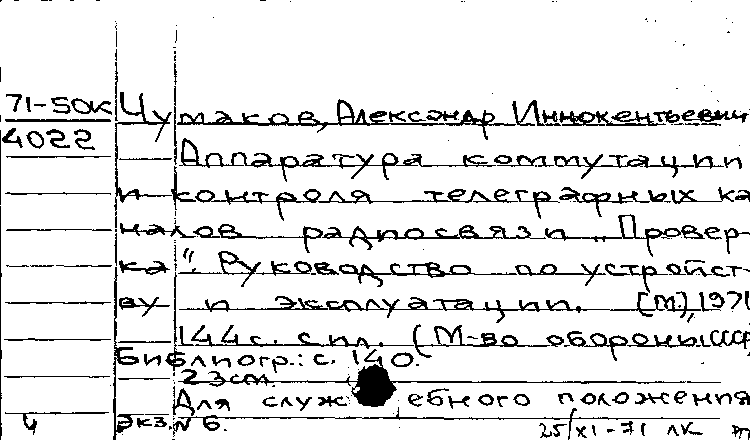 71-50к Чумаков, Александр Иннокентьевич
4022
Аппаратура коммутации
и контроля телеграфных ка
налов радиосвязи „Провер-
ка". Руководство по устройст-
ву и эксплуатации. [М], 1971
144 с. с ил. (М-во обороны СССР)
Библиогр.: с. 140.
23 см.
Для служебного положения
ч экз. № 6. 25/XI-71 ЛК